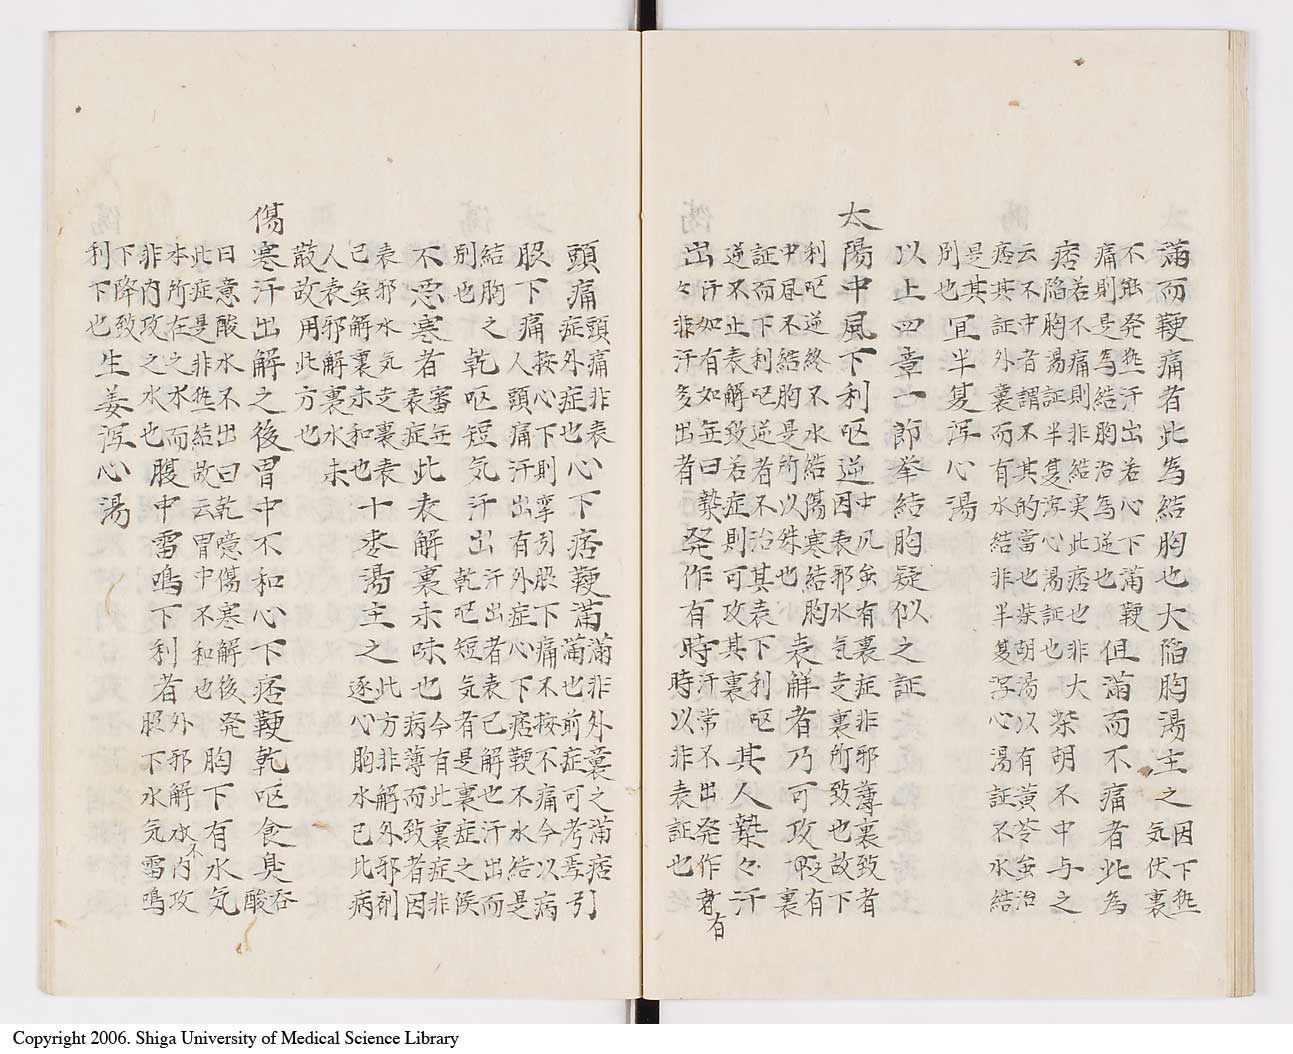 滿而鞕痛者此為結胸也大陷胸湯主之因下𤍠
気伏裏
不能発𤍠汗出若心下滿鞕
痛則是為結胸治為逆也但滿而不痛者此為
痞若不痛則非結実此痞也非大
陷胸湯証半夏瀉心湯証也柴胡不中与之
云不中者謂不其的當也柴胡湯以有黄苓虽治
痞其証外裏而有水結非半夏瀉心湯証不水結
是其
別也宜半夏瀉心湯
以上四章一節挙結胸疑似之証
太陽中風下利呕逆中風虽有裏症非邪薄裏致者
因表邪水気走裏所致也故下
利呕逆終不水結傷寒結胸
中風不結胸是所以殊也表解者乃可攻之既有
裏
証而下利呕逆者不治其表下利呕
逆不止表解致若症則可攻其裏其人漐々汗
出々汗如有如無曰漐
非汗多出者発作有時汗常不出発作有
時以非表証也
頭痛頭痛非表
症外症也心下痞鞕滿滿非外裏之滿痞
滿也前症可考焉引
股下痛按心下則牽引股下痛不按不痛今以病
人頭痛汗出有外症心下痞鞕不水結是
結胸之
別也乾呕短気汗出汗出者表已解也汗出而
乾呕短気者是裏症之候
不悪寒者審無
表症此表解裏未味也今有此裏症非
病薄而致者因
表邪水気走裏表
已虽解裏未和也十枣湯主之此方非解外邪剤
逐心胸水已比病
人表邪解裏水未
散故用此方也
傷寒汗出解之後胃中不和心下痞鞕乾呕食臭吞
酸
曰意酸水不出曰乾噫傷寒解後発
此症是非𤍠結故云胃中不和也胸下有水気
本所在之水而
非内攻之水也腹中雷鳴下利者外邪解水不内攻
股下水気雷鳴
下降致
利下也生姜瀉心湯
Copyright 2006. Shiga University of Medical Science Library